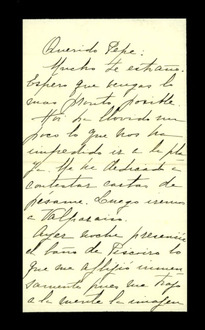 Querido Pepe:
Mucho te extraño.
Espero que vengas lo
mas pronto posible.
Hoy ha llovido un
poco lo que nos ha
impedido ir a la pla
ya. Me he dedicado a
contestar cartas de
pesame. Luego iremos
a Valparaiso.
Ayer noche presencié
el baño de
que me afligió inmen
samente pues me trajo
a la mente la imagen